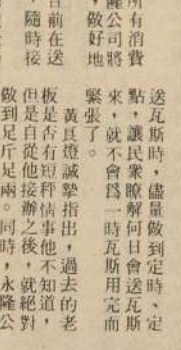 所有消費
隆公司將
，做好地
目前在送
隨時接
送瓦斯時，儘量做到定時、定
點，讓民衆瞭解何日會送瓦斯
來，就不會爲一時瓦斯用完而
緊張了。
黃良燈誠摯指出，過去的老
板是否有短秤情事他不知道，
但是自從他接辦之後，就絕對
做到足斤足兩。同時，永隆公